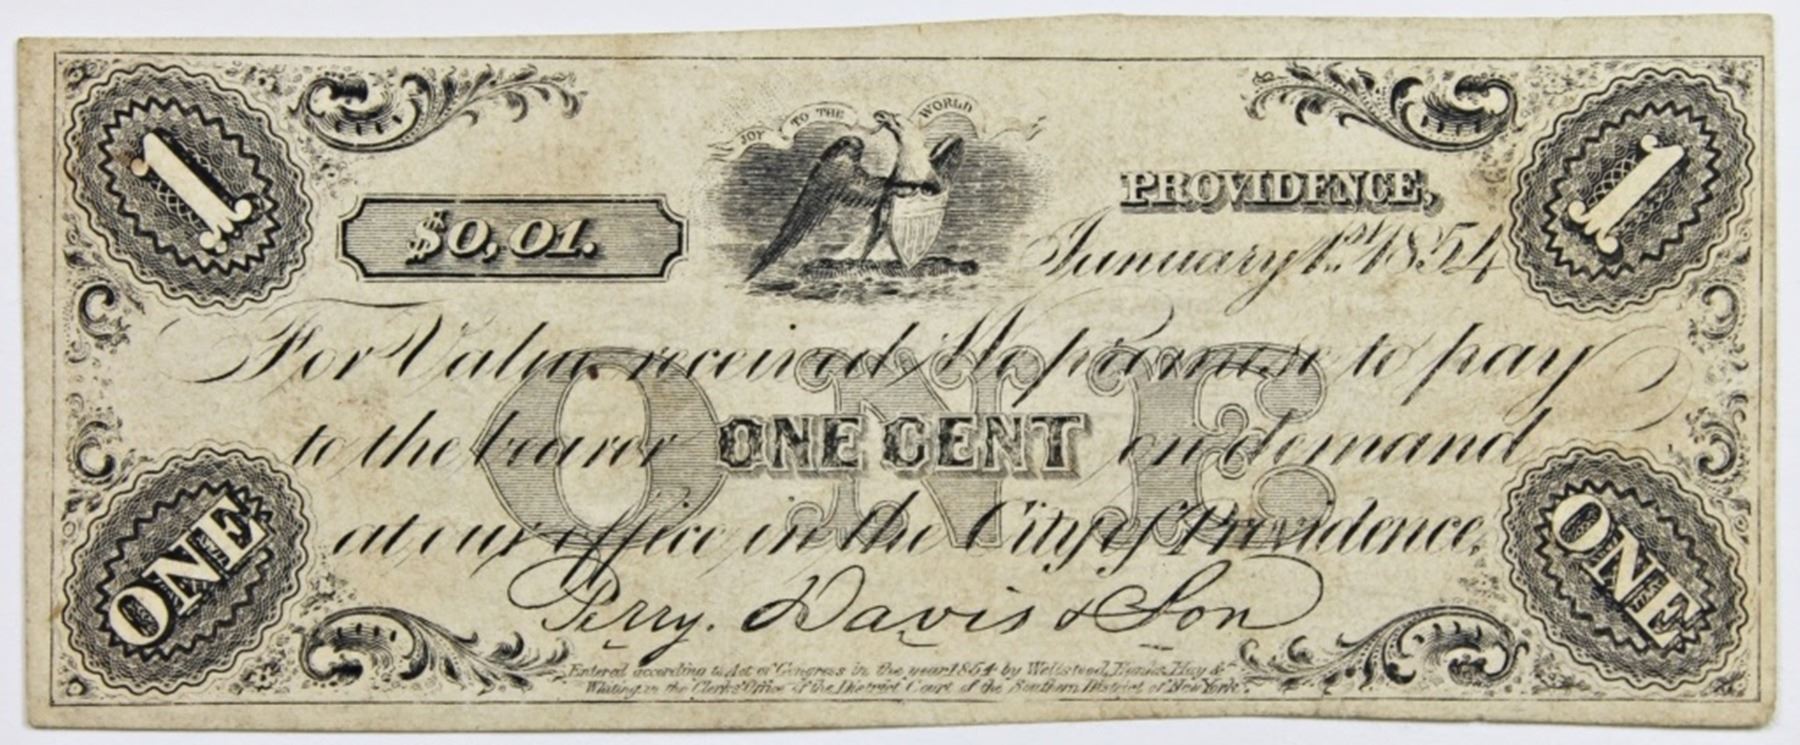 1
JOY TO THE WORLD
1
PROVIDENCE,
$0,01.
January 1st 1854
For Value received We promise to pay
to the bearer ONE CENT on demand
ONE
at our office in the City of Providence,
ONE
ONE
Perry. Davis & Son
Entered according to Act of Congress in the year 1854 by Wellstood, Hanks, Hay &
Whiting in the Clerks Office of the District Court of the Southern District of New York